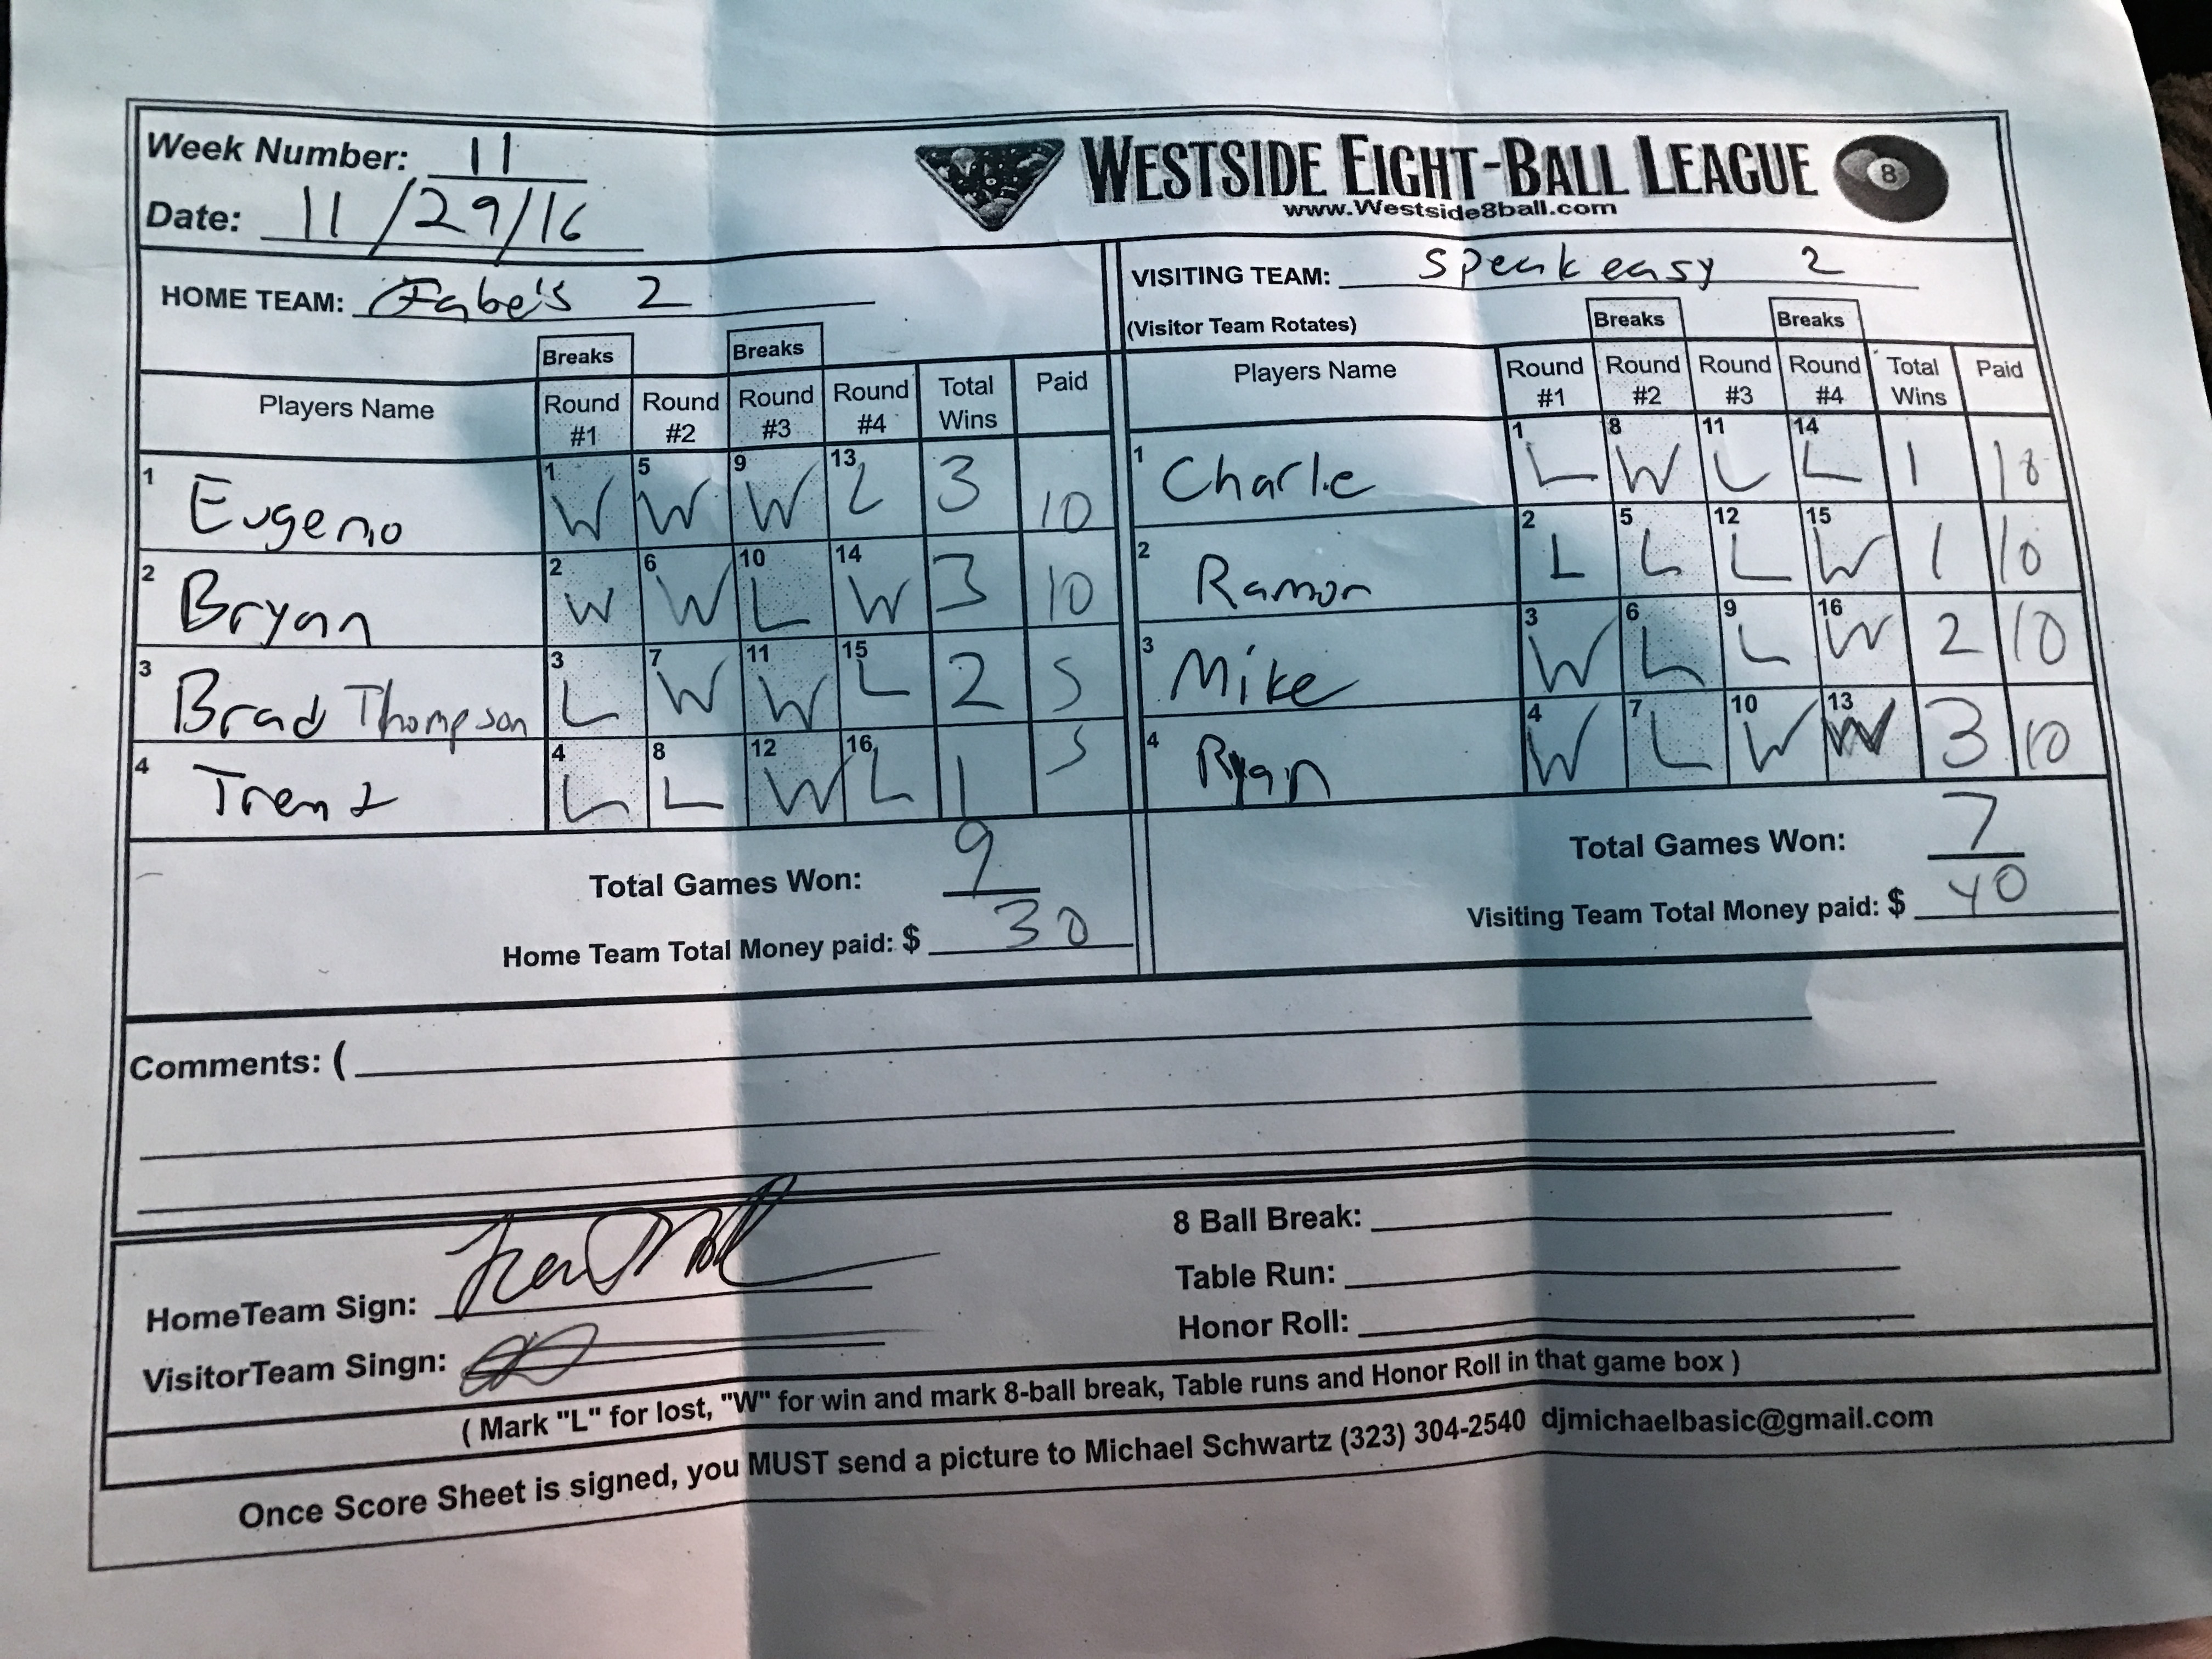 Week Number: 11
Date: 11/29/16
WESTSIDE EIGHT-BALL LEAGUE 8
www.Westside8ball.com
HOME TEAM: Fabe's 2
VISITING TEAM: Speakeasy 2
(Visitor Team Rotates)
Breaks Breaks
Breaks Breaks
Players Name Round #1 Round #2 Round #3 Round #4 Total Wins Paid
1 Eugenio 1 W 5 W 9 W 13 L 3 10
2 Bryan 2 W 6 W 10 L 14 W 3 10
3 Brad Thompson 3 L 7 W 11 W 15 L 2 5
4 Trent 4 L 8 L 12 W 16 L 1 5
Total Games Won: 9
Home Team Total Money paid: $ 30
Players Name Round #1 Round #2 Round #3 Round #4 Total Wins Paid
1 Charlie 1 L 8 W 11 L 14 L 1 10
2 Ramon 2 L 5 L 12 L 15 W 1 10
3 Mike 3 W 6 L 9 L 16 W 2 10
4 Ryan 4 W 7 L 10 W 13 W 3 10
Total Games Won: 7
Visiting Team Total Money paid: $ 40
Comments: (
HomeTeam Sign:
VisitorTeam Singn:
8 Ball Break:
Table Run:
Honor Roll:
( Mark "L" for lost, "W" for win and mark 8-ball break, Table runs and Honor Roll in that game box )
Once Score Sheet is signed, you MUST send a picture to Michael Schwartz (323) 304-2540 djmichaelbasic@gmail.com